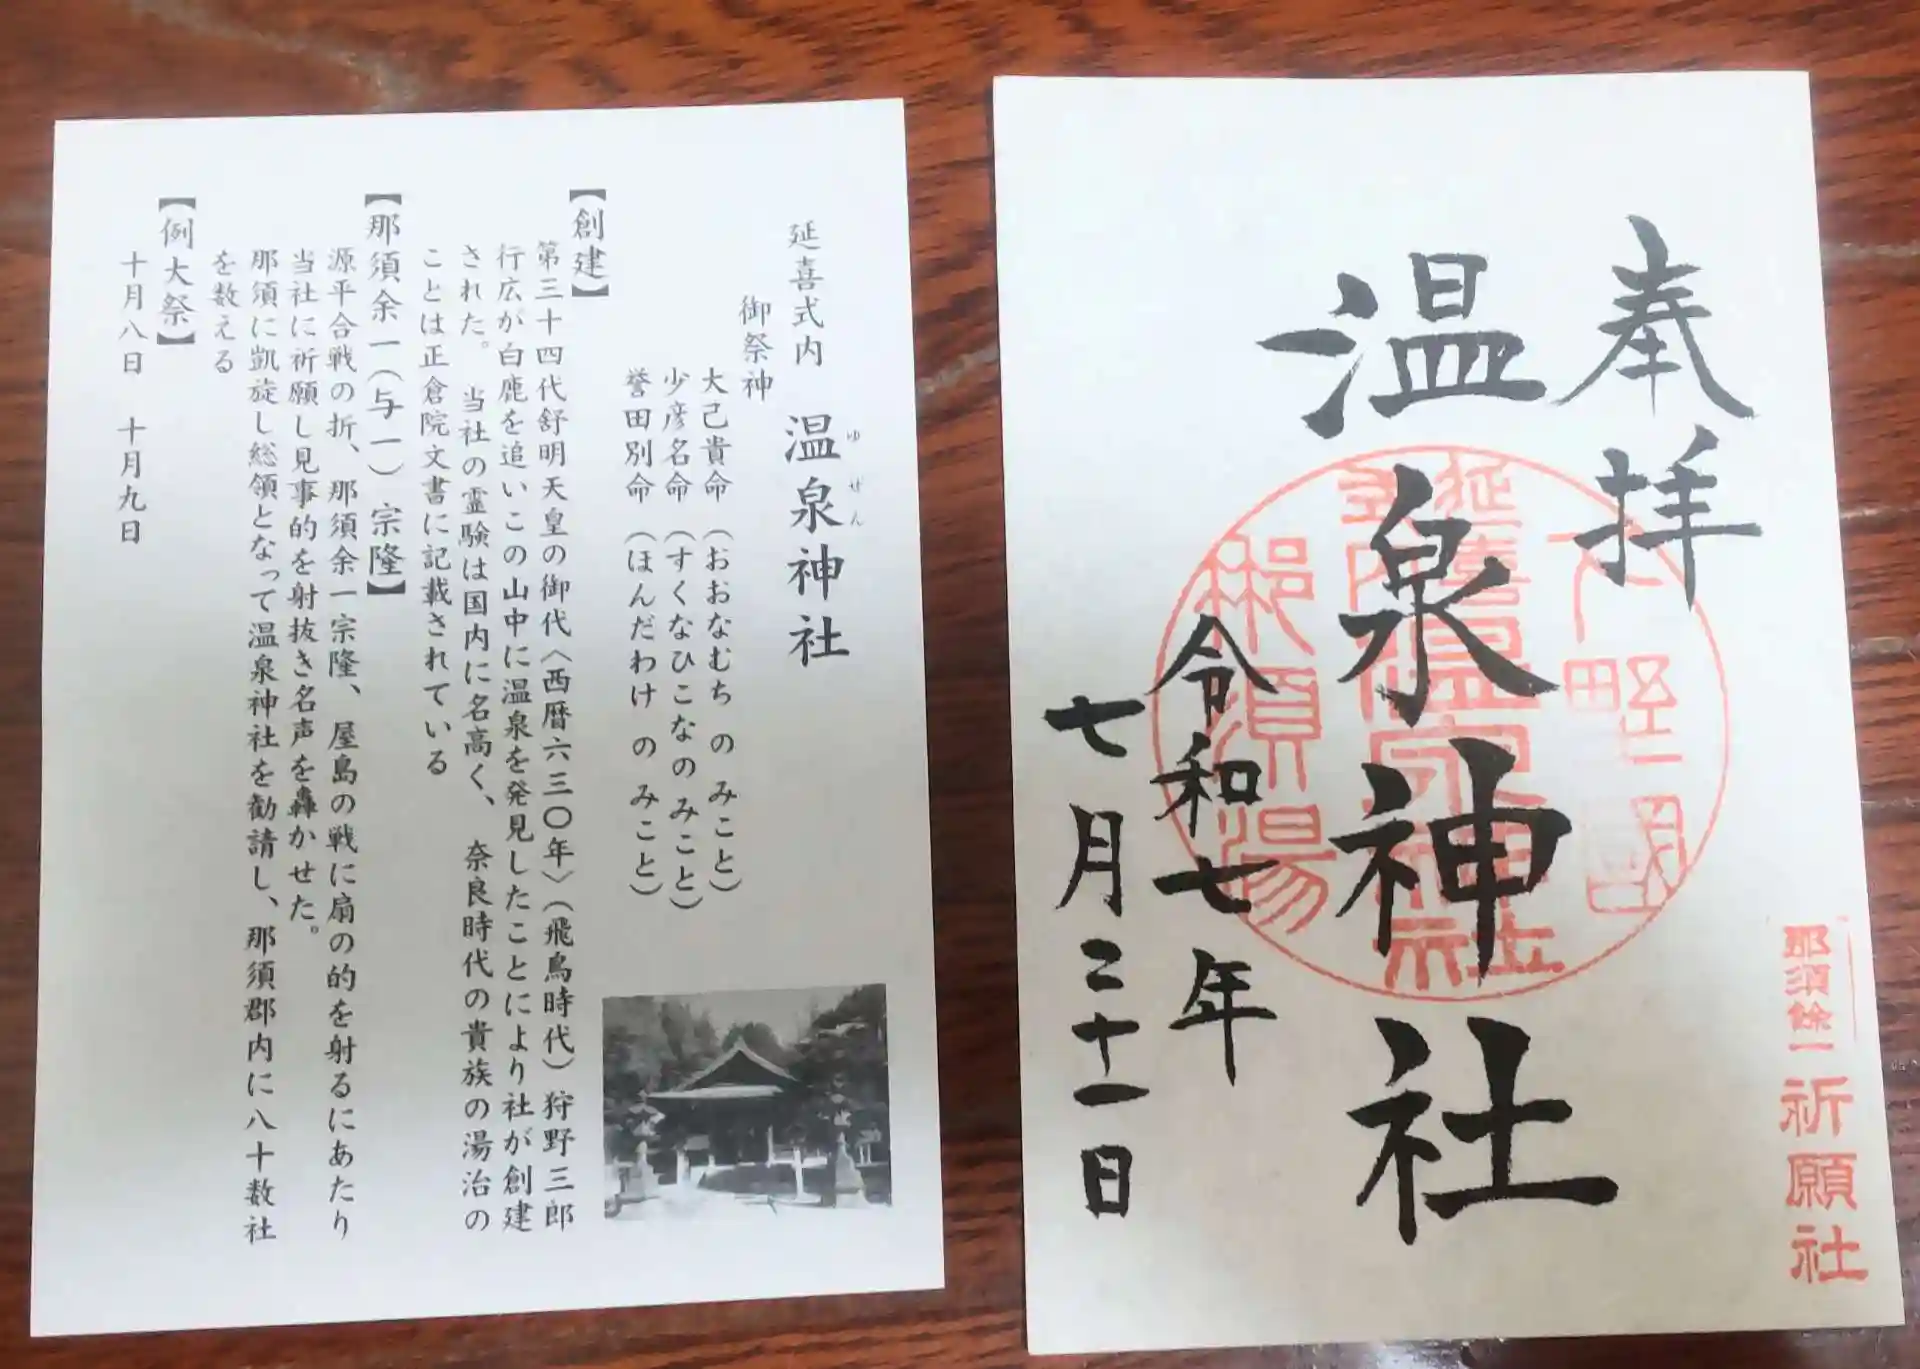 奉拝
温泉神社
令和七年
七月三十一日
延喜式内
温泉神社
下野國
那須湯
那須餘一
祈願社
延喜式内 温泉神社
ゆぜん
御祭神
大己貴命（おおなむち の みこと）
少彦名命（すくなひこなの みこと）
誉田別命（ほんだわけ の みこと）
【創建】
第三十四代舒明天皇の御代〈西暦六三〇年〉（飛鳥時代）狩野三郎
行広が白鹿を追いこの山中に温泉を発見したことにより社が創建
された。 当社の霊験は国内に名高く、 奈良時代の貴族の湯治の
ことは正倉院文書に記載されている
【那須余一（与一）宗隆】
源平合戦の折、那須余一宗隆、屋島の戦に扇の的を射るにあたり
当社に祈願し見事的を射抜き名声を轟かせた。
那須に凱旋し総領となって温泉神社を勧請し、那須郡内に八十数社
を数える
【例大祭】
十月八日 十月九日